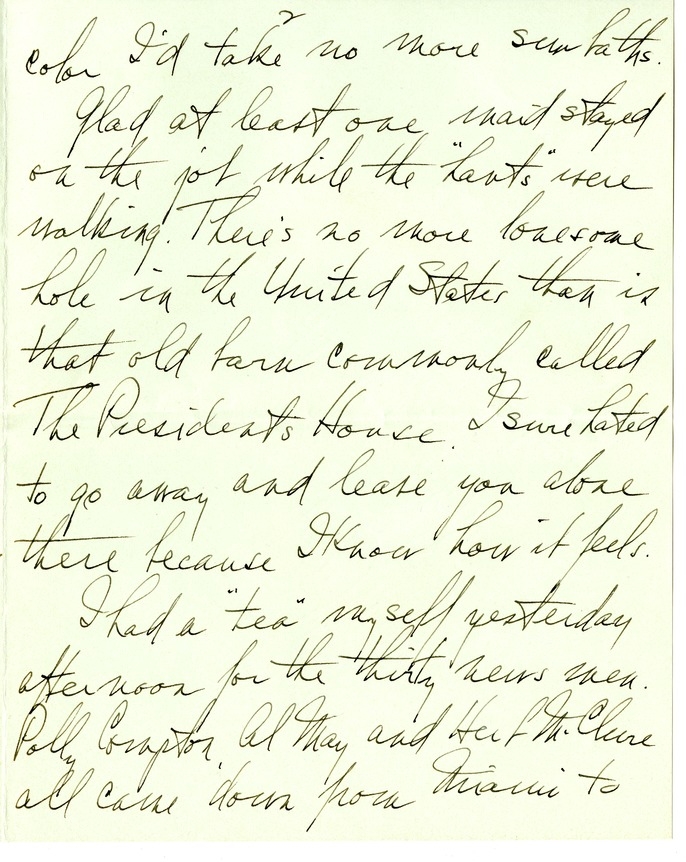 2
color I'd take no more sun baths.
Glad at least one maid stayed
on the job while the "hants" were
walking. There's no more lonesome
hole in the United States than is
that old barn commonly called
The President's House. I sure hated
to go away and leave you alone
there because I know how it feels.
I had a "tea" myself yesterday
afternoon for the thirty news men.
Polly Compton, Al May and Herb McClure
all came down from Miami to